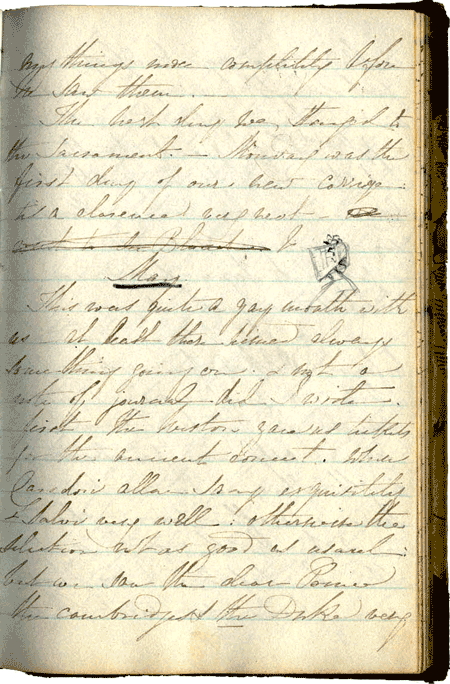 things more completely before
I saw them. —
The next day we, stayed to
the Sacrament. — Monday was the
first day of our new carriage
it is a
to the
May
This was quite a gay month with
us at least there seemed always
something going on & not a
note of journal did I write.
first the gave us tickets
for the ancient concert. where
Caradori allan sang exquisitely
& Salvi very well: otherwise the
selection not as good as usual:
but we saw the dear Prince
the cambridges & the Duke very